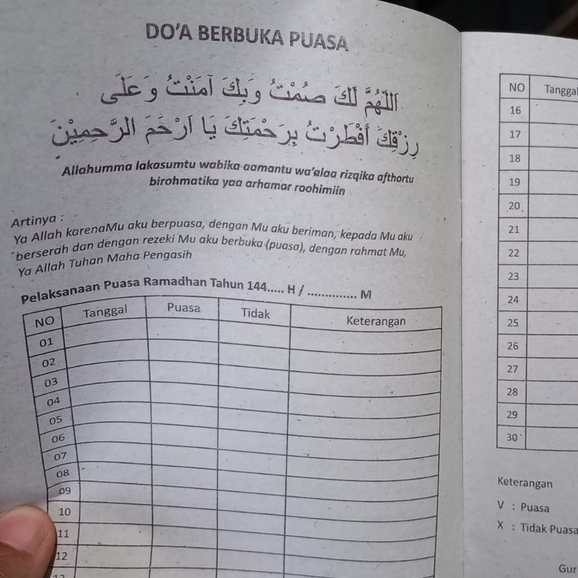 DO'A BERBUKA PUASA
اَللّٰهُمَّ لَكَ صُمْتُ وَبِكَ آمَنْتُ وَعَلَى
رِزْقِكَ أَفْطَرْتُ بِرَحْمَتِكَ يَا اَرْحَمَ الرَّحِمِيْنَ
Allahumma lakasumtu wabika aamantu wa'alaa rizqika afthortu
birohmatika yaa arhamar roohimiin
Artinya :
Ya Allah karenaMu aku berpuasa, dengan Mu aku beriman, kepada Mu aku
berserah dan dengan rezeki Mu aku berbuka (puasa), dengan rahmat Mu,
Ya Allah Tuhan Maha Pengasih
Pelaksanaan Puasa Ramadhan Tahun 144..... H / .............. M
NO Tanggal Puasa Tidak Keterangan
01
02
03
04
05
06
07
08
09
10
11
12
NO
16
17
18
19
20
21
22
23
24
25
26
27
28
29
30
Keterangan
V : Puasa
X : Tidak Puasa